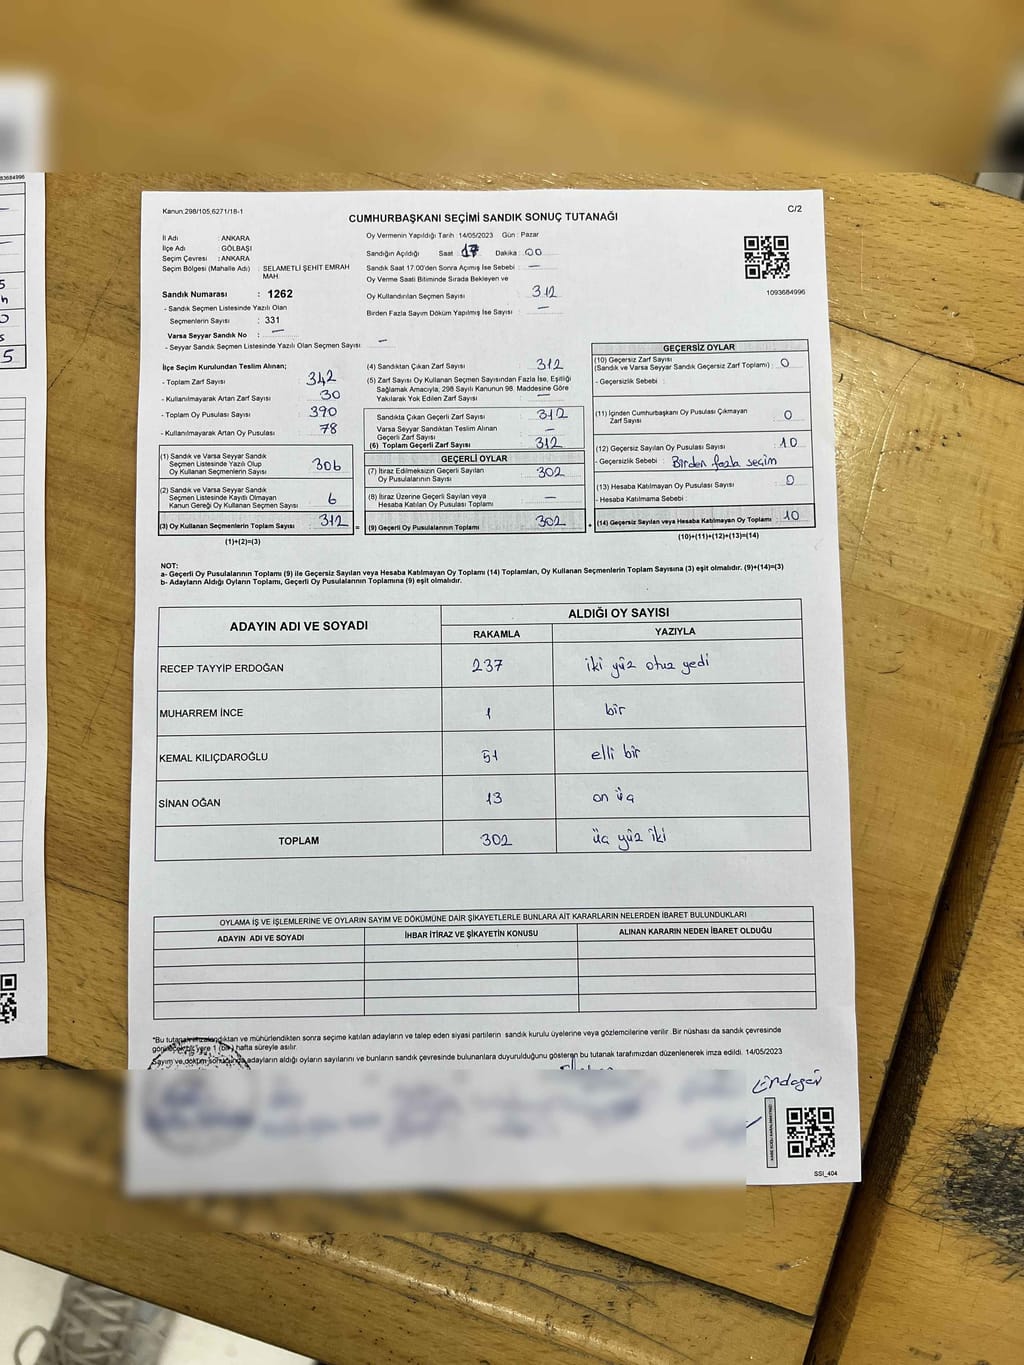 Kanun:298/105;6271/18-1
C/2
CUMHURBAŞKANI SEÇİMİ SANDIK SONUÇ TUTANAĞI
İl Adı : ANKARA
İlçe Adı : GÖLBAŞI
Seçim Çevresi : ANKARA
Seçim Bölgesi (Mahalle Adı) : SELAMETLİ ŞEHİT EMRAH MAH
Sandık Numarası : 1262
- Sandık Seçmen Listesinde Yazılı Olan
Seçmenlerin Sayısı : 331
Varsa Seyyar Sandık No : —
- Seyyar Sandık Seçmen Listesinde Yazılı Olan Seçmen Sayısı : —
Oy Vermenin Yapıldığı Tarih : 14/05/2023 Gün : Pazar
Sandığın Açıldığı Saat : 17 Dakika : 00
Sandık Saat 17:00'den Sonra Açımış İse Sebebi : —
Oy Verme Saati Bitiminde Sırada Bekleyen ve
Oy Kullandırılan Seçmen Sayısı : 312
Birden Fazla Sayım Döküm Yapılmış İse Sayısı : —
1093684996
İlçe Seçim Kurulundan Teslim Alınan;
- Toplam Zarf Sayısı : 342
- Kullanılmayarak Artan Zarf Sayısı : 30
- Toplam Oy Pusulası Sayısı : 390
- Kullanılmayarak Artan Oy Pusulası : 78
(1) Sandık ve Varsa Seyyar Sandık
Seçmen Listesinde Yazılı Olup
Oy Kullanan Seçmenlerin Sayısı : 306
(2) Sandık ve Varsa Seyyar Sandık
Seçmen Listesinde Kayıtlı Olmayan
Kanun Gereği Oy Kullanan Seçmen Sayısı : 6
(3) Oy Kullanan Seçmenlerin Toplam Sayısı : 312 =
(1)+(2)=(3)
(4) Sandıktan Çıkan Zarf Sayısı : 312
(5) Zarf Sayısı Oy Kullanan Seçmen Sayısından Fazla İse, Eşitliği
Sağlamak Amacıyla, 298 Sayılı Kanunun 98. Maddesine Göre
Yakılarak Yok Edilen Zarf Sayısı : —
Sandıkta Çıkan Geçerli Zarf Sayısı : 312
Varsa Seyyar Sandıktan Teslim Alınan
Geçerli Zarf Sayısı : —
(6) Toplam Geçerli Zarf Sayısı : 312
GEÇERLİ OYLAR
(7) İtiraz Edilmeksizin Geçerli Sayılan
Oy Pusulasının Sayısı : 302
(8) İtiraz Üzerine Geçerli Sayılan veya
Hesaba Katılan Oy Pusulası Toplamı : —
(9) Geçerli Oy Pusulalarının Toplamı : 302 +
GEÇERSİZ OYLAR
(10) Geçersiz Zarf Sayısı
(Sandık ve Varsa Seyyar Sandık Geçersiz Zarf Toplamı) : 0
- Geçersizlik Sebebi :
(11) İçinden Cumhurbaşkanı Oy Pusulası Çıkmayan
Zarf Sayısı : 0
(12) Geçersiz Sayılan Oy Pusulası Sayısı : 10
- Geçersizlik Sebebi : Birden fazla seçim
(13) Hesaba Katılmayan Oy Pusulası Sayısı : 0
- Hesaba Katılmama Sebebi :
(14) Geçersiz Sayılan veya Hesaba Katılmayan Oy Toplamı : 10
(10)+(11)+(12)+(13)=(14)
NOT:
a- Geçerli Oy Pusulalarının Toplamı (9) ile Geçersiz Sayılan veya Hesaba Katılmayan Oy Toplamı (14) Toplamları, Oy Kullanan Seçmenlerin Toplam Sayısına (3) eşit olmalıdır. (9)+(14)=(3)
b- Adayların Aldığı Oyların Toplamı, Geçerli Oy Pusulalarının Toplamına (9) eşit olmalıdır.
ADAYIN ADI VE SOYADI
ALDIĞI OY SAYISI
RAKAMLA YAZIYLA
RECEP TAYYİP ERDOĞAN 237 iki yüz otuz yedi
MUHARREM İNCE 1 bir
KEMAL KILIÇDAROĞLU 51 elli bir
SİNAN OĞAN 13 on üç
TOPLAM 302 üç yüz iki
OYLAMA İŞ VE İŞLEMLERİNE VE OYLARIN SAYIM VE DÖKÜMÜNE DAİR ŞİKAYETLERLE BUNLARA AİT KARARLARIN NELERDEN İBARET BULUNDUKLARI
ADAYIN ADI VE SOYADI İHBAR İTİRAZ VE ŞİKAYETİN KONUSU ALINAN KARARIN NEDEN İBARET OLDUĞU
*Bu tutanak imzalandıktan ve mühürlendikten sonra seçime katılan adayların ve talep eden siyasi partilerin sandık kurulu üyelerine veya gözlemcilerine verilir. Bir nüshası da sandık çevresinde
görülecek bir yere 1 (bir) hafta süreyle asılır.
Sayım ve döküm sonucunda adayların aldığı oyların sayılarını ve bunların sandık çevresinde bulunanlara duyurulduğunu gösteren bu tutanak tarafımızdan düzenlenerek imza edildi. 14/05/2023
SSI_404